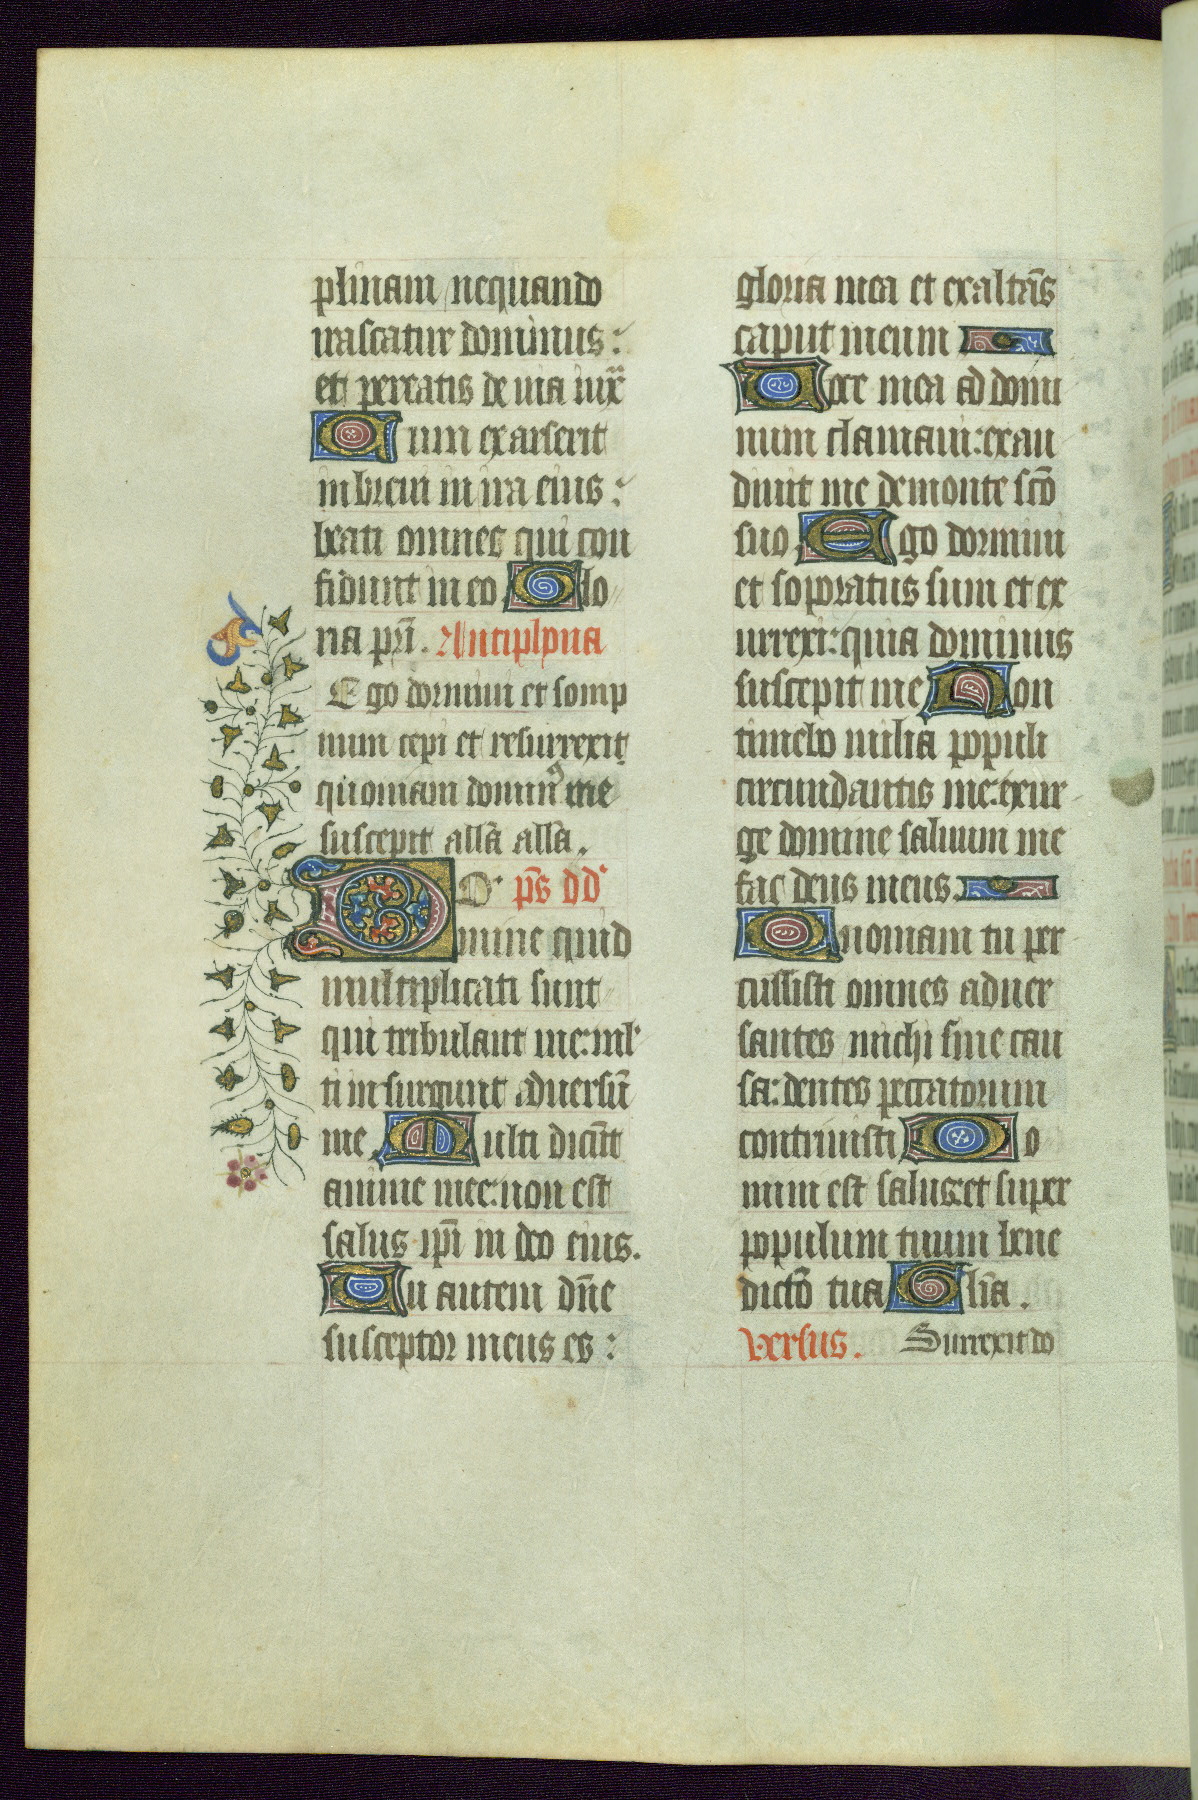 plinam nequando
irascatur dominus:
et pereatis de uia iux̄
Cum exarserit
in breui in ira eius:
beati omnes qui con
fidunt in eo Glo
ria pr̄i. Antiphona
Ego dormiui et somp
num cepi et resurrexit
quoniam dominꝰ me
suscepit all'a all'a.
Do. ps̄ dd'
mine quid
multiplicati sunt
qui tribulant me: ml'
ti insurgunt aduersū
me. Multi dicūt
anime mee: non est
salus ip̄i in deo eius.
Tu autem dn̄e
susceptor meus es:
gloria mea et exaltās
caput meum
Uoce mea ad domi
num clamaui: exau
diuit me de monte sc̄o
suo. Ego dormiui
et soporatus sum et ex
urrexi: quia dominus
suscepit me Non
timebo milia populi
circundantis me: exur
ge domine saluum me
fac deus meus.
Quoniam tu per
cussisti omnes aduer
santes michi sine cau
sa: dentes peccatorum
contriuisti Do
mini est salus: et super
populum tuum bene
dictō tua Gl'ia.
Versus. Surrexit do